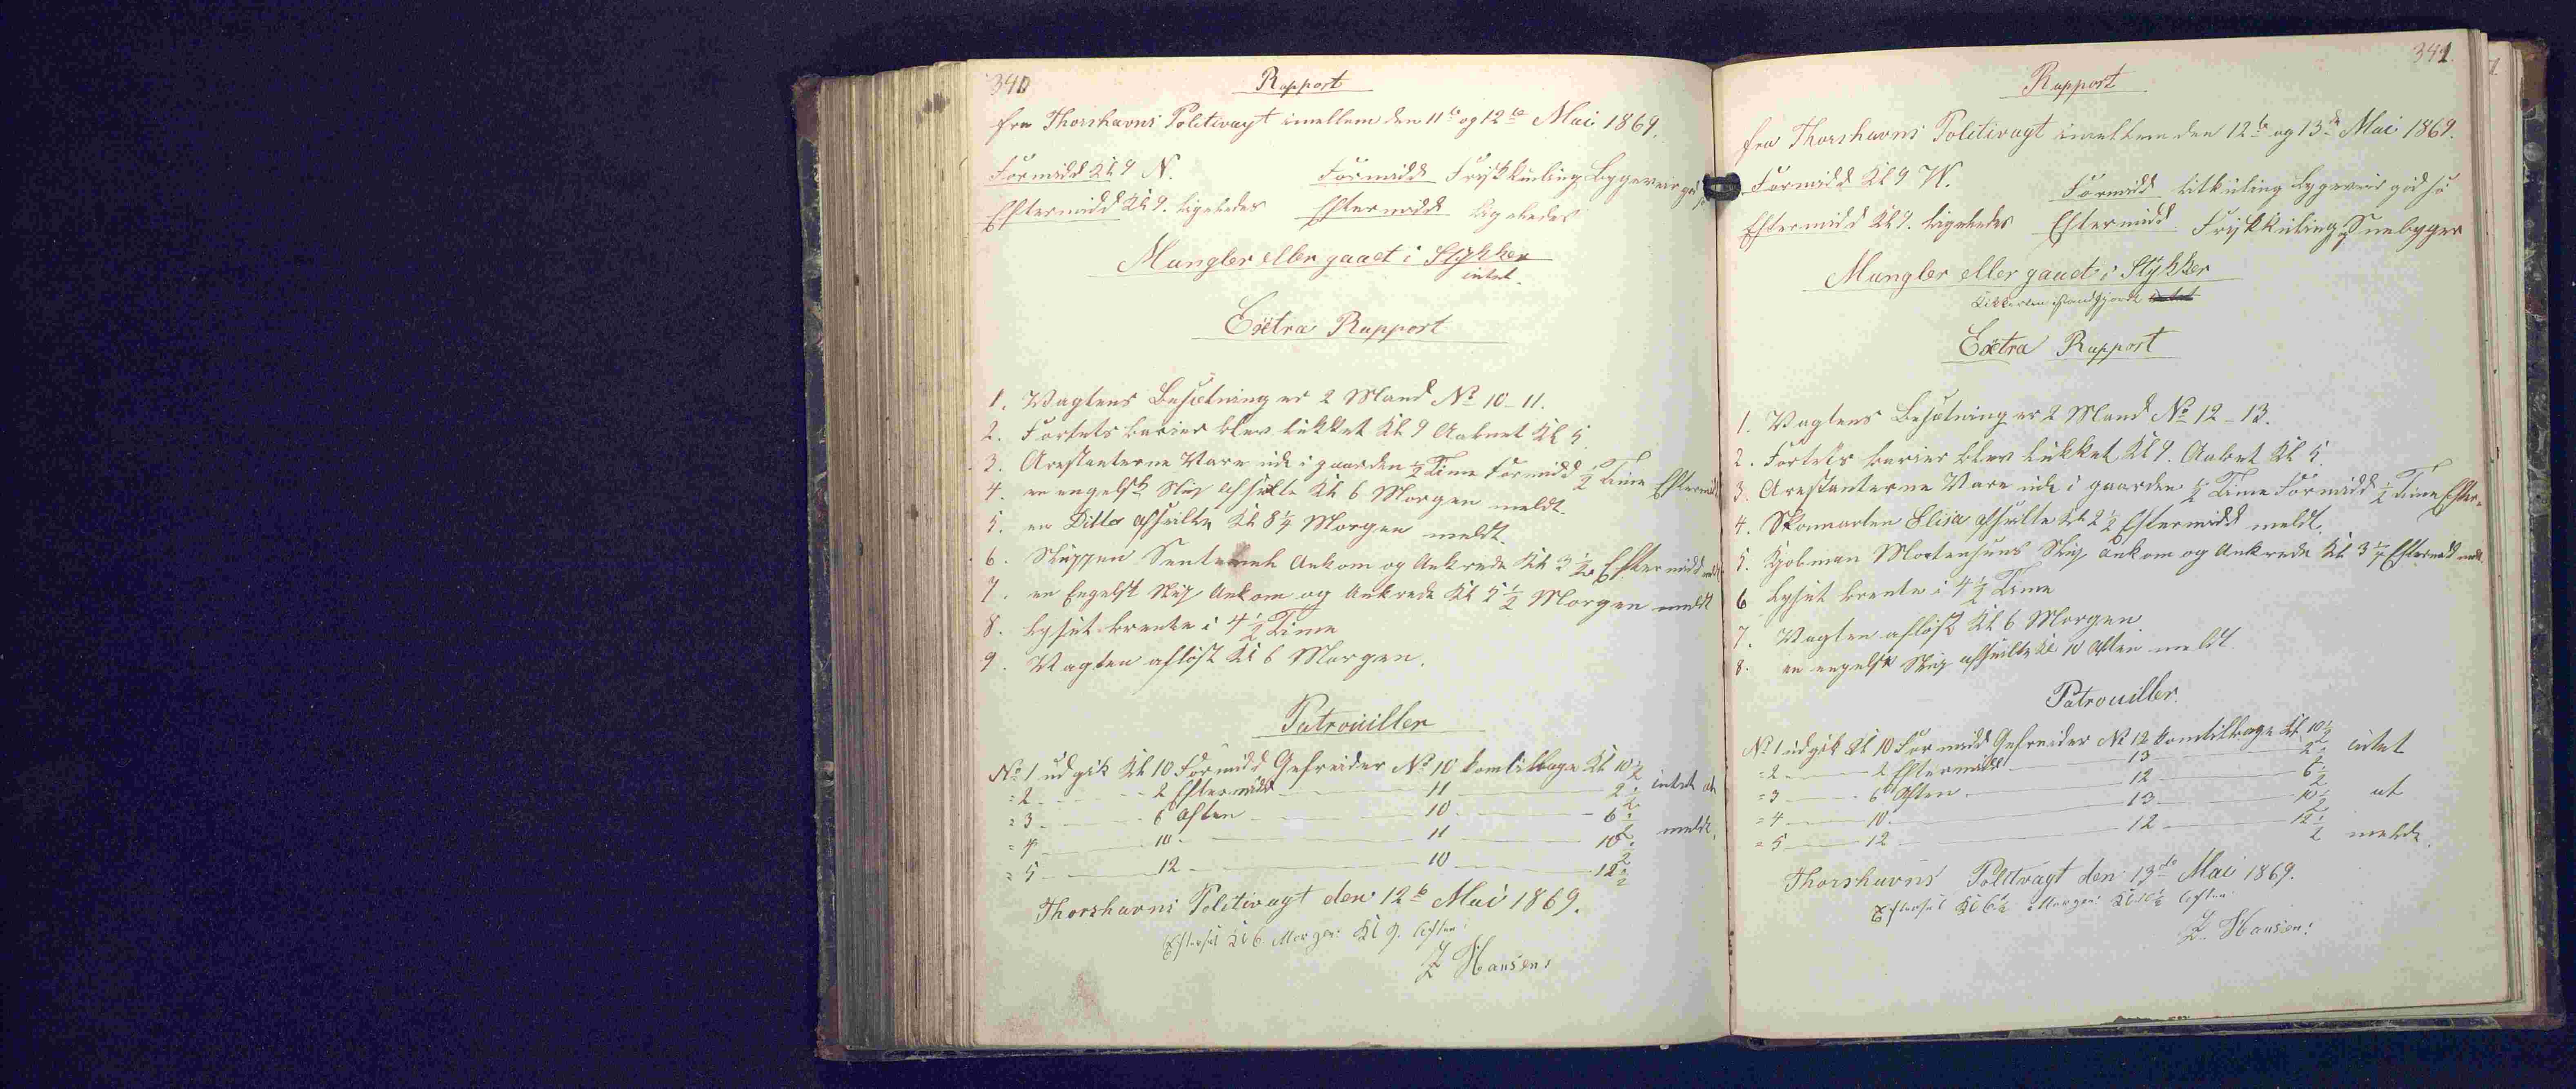 340
Rapport
fra Thorshavns Politivagt imellem den 11te og 12te Mai 1869.
Formidd Kl 9 N. Formidd Friskkuling Bygeveir
Eftermidd Kl 9. ligeledes Eftermidd ligeledes
Mangler eller gaaet i Stykker
intet.
Extra Rapport
1. Vagtens Besætning er 2 Mand No 10-11.
2. Fortets barier blev lukket Kl 9 Aabnet Kl 5
3. Arestanterne Vare ude i gaarden ½ Time Formidd ½ Time Eftermidd
4. en engelsk Slup afseilte Kl 6 Morgen meldt.
5. en Ditto afseilte Kl 8¼ Morgen meldt.
6. Sluppen Ankom og Ankrede Kl 3½ Eftermidd meldt
7. en Engelsk Slup Ankom og Ankrede Kl 5½ Morgen meldt
8. Lyset brente i 4½ Time
9. Vagten afløst Kl 6 Morgen.
Patrouiller
No 1 udgik Kl 10 Formidd Gefreider No 10 kom tilbage Kl 10½
=2 2 Eftermidd 11 2½ intet at
=3 6 Aften 10 6½
=4 10 11 10½ meldt.
=5 12 10 12½
Thorshavns Politivagt den 12te Mai 1869.
Efterset Kl 6. Morgen: Kl 9. Aften:
Hansen:
341
Rapport
fra Thorshavns Politivagt imellem den 12te og 13de Mai 1869.
Formidd Kl 9 W. Formidd Litkuling bygeveir god sö
Eftermidd Kl 9. ligeledes Eftermidd Friskkuling Sneebyger
Mangler eller gaaet i Stykker
Kikkerten istandgjordt intet
Extra Rapport
1. Vagtens Besætning er 2 Mand No 12-13.
2. Fortets barier blev lukket Kl 9. Aabet Kl 5
3. Arestanterne Vare ude i gaarden ½ Time Formidd ½ Time Efter=
4. Skonnerten Elisa afseilte Kl 2½ Eftermidd meldt.
5. Kjobman Mortensens Slup ankom og Ankrede Kl 3½ Eftermidd meldt.
6 Lyset brente i 4½ Time
7. Vagten afløst Kl 6 Morgen
8. en engelsk Slup afseilte Kl 10 Aften meldt
Patrouiller.
No 1 udgik Kl 10 Formidd Gefreider No 12 kom tilbage Kl 10½
=2 2 Eftermidd 13 2½ intet
=3 6 Aften 12 6½
=4 10 13 10½ at
=5 12 12 12½ melde.
Thorshavns Politvagt den 13de Mai 1869.
Efterset Kl 6½ Morgen: Kl 10½ Aften
Hansen: